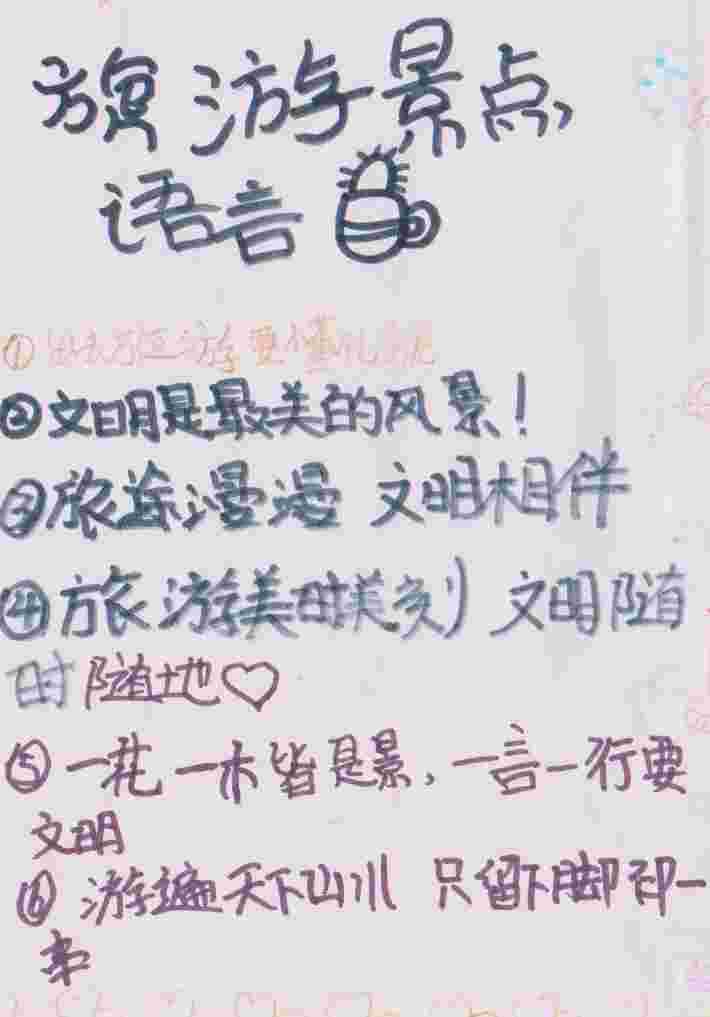 旅游景点
语言
① 出去旅游要懂礼
② 文明是最美的风景!
③ 旅途漫漫 文明相伴
④ 旅游美时美刻 文明随
时随地♡
⑤ 一花一木皆是景,一言一行要
文明
⑥ 游遍天下山川 只留下脚印一
串